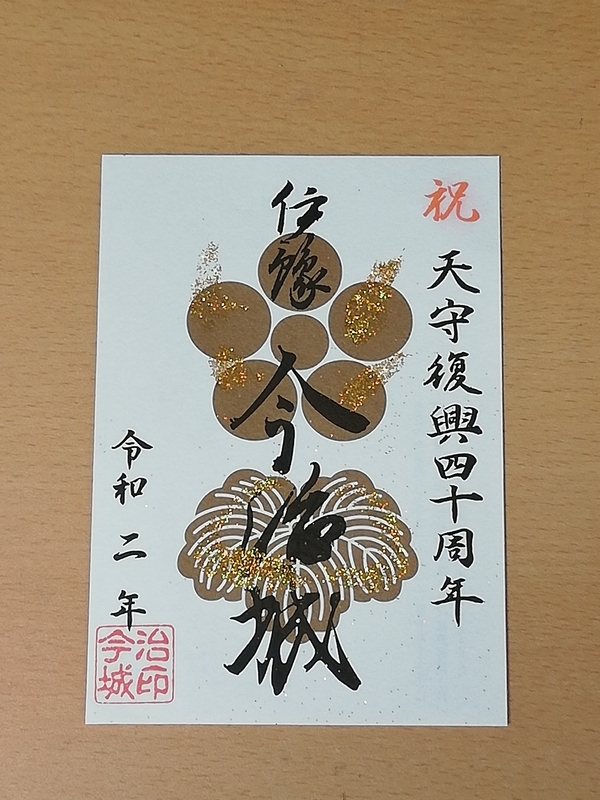 祝
天守復興四十周年
伊豫
今治城
令和二年
今治城印